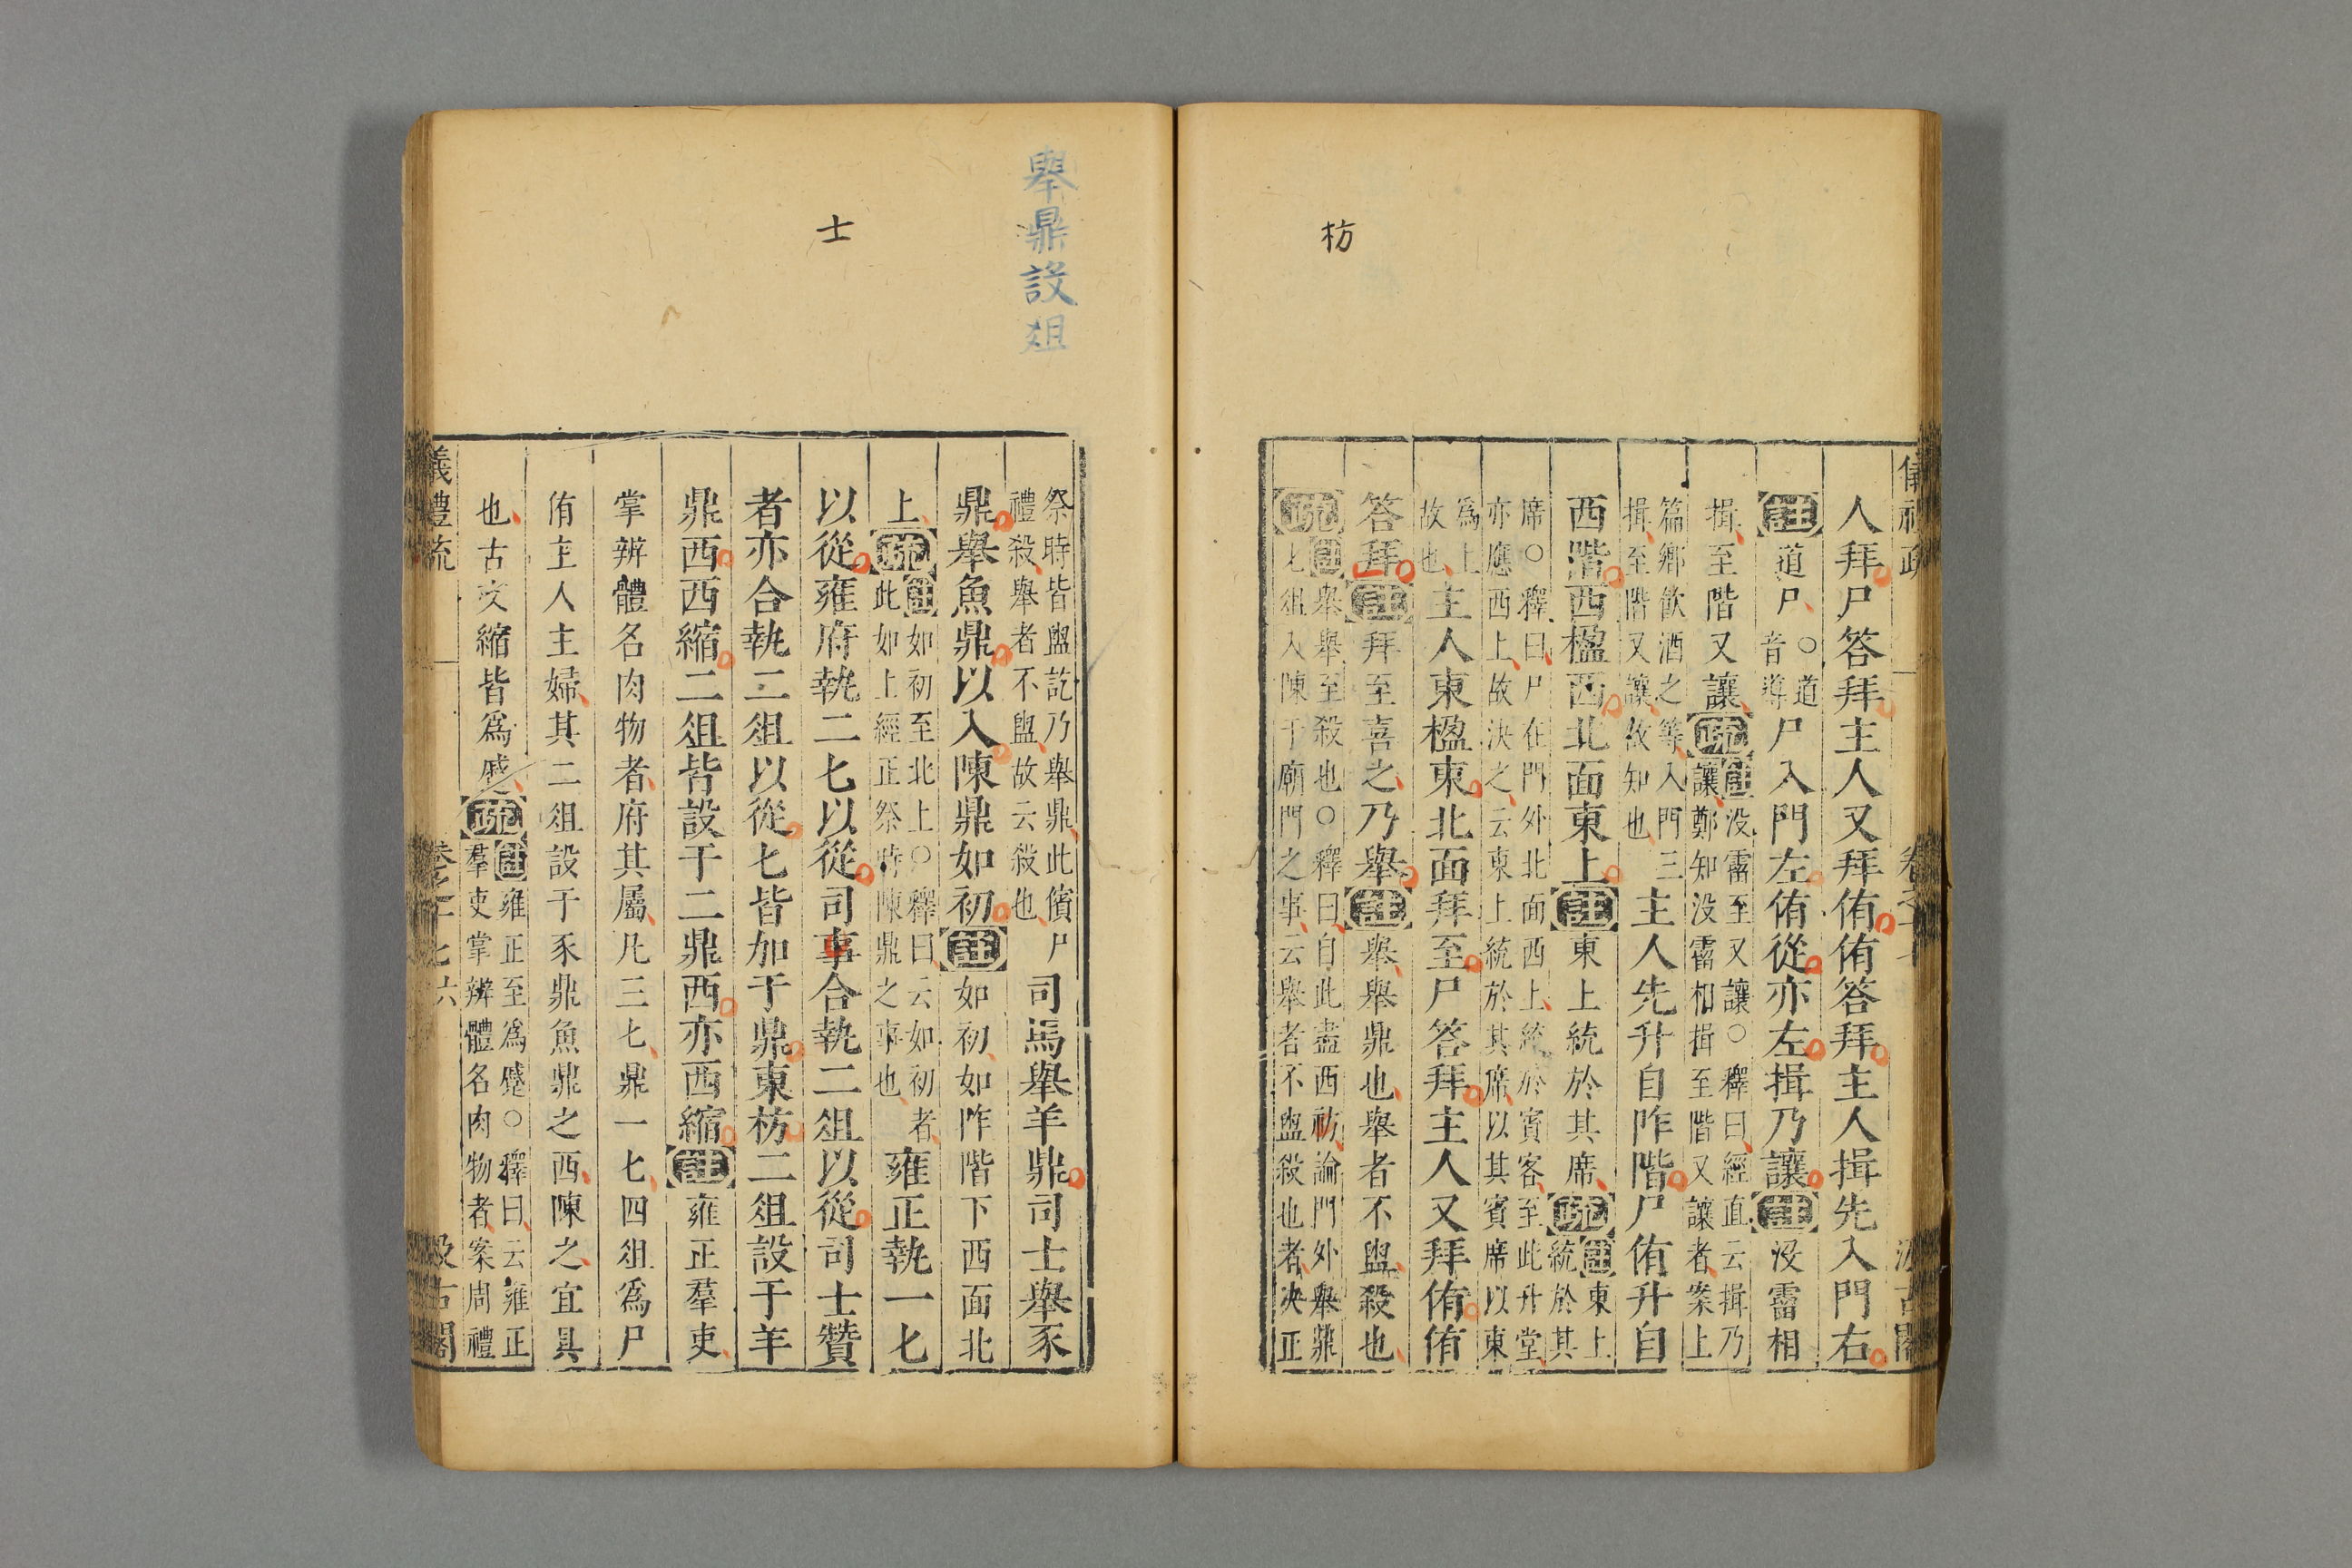 枋
人拜尸答拜主人又拜侑侑答拜主人揖先入門右
註道尸○道音導尸入門左侑從亦左揖乃讓註沒霤相
揖至階又讓疏註没霤至又讓○釋曰經直云揖乃讓鄭知没霤相揖至階又讓者案上
篇鄉飲酒之等入門三揖至階又讓故知也主人先升自阼階尸侑升自
西階西楹西北面東上註東上統於其席疏註東上統於其
席○釋曰尸在門外北面西上統於賓客至此升堂亦應西上故決之云東上統於其席以其賓席以東
爲上故也主人東楹東北面拜至尸答拜主人又拜侑侑
答拜註拜至喜之乃舉註舉舉鼎也舉者不盥殺也
疏註舉舉至殺也○釋曰自此盡西祊論門外舉鼎匕俎入陳于廟門之事云舉者不盥殺也者决正
舉鼎設俎
士
祭時皆盥訖乃舉鼎此儐尸禮殺舉者不盥故云殺也司馬舉羊鼎司士舉豕
鼎舉魚鼎以入陳鼎如初註如初如阼階下西面北
上疏註如初至北上○釋曰云如初者此如上經正祭時陳鼎之事也雍正執一匕
以從雍府執二匕以從司事合執二俎以從司士贊
者亦合執二俎以從匕皆加于鼎東枋二俎設于羊
鼎西西縮二俎皆設于二鼎西亦西縮註雍正羣吏
掌辨體名肉物者府其屬凡三匕鼎一匕四俎爲尸
侑主人主婦其二俎設于豕鼎魚鼎之西陳之宜具
也古文縮皆爲蹙疏註雍正至爲蹙○釋曰云雍正羣吏掌辨體名肉物者案周禮
儀禮疏
汲古閣